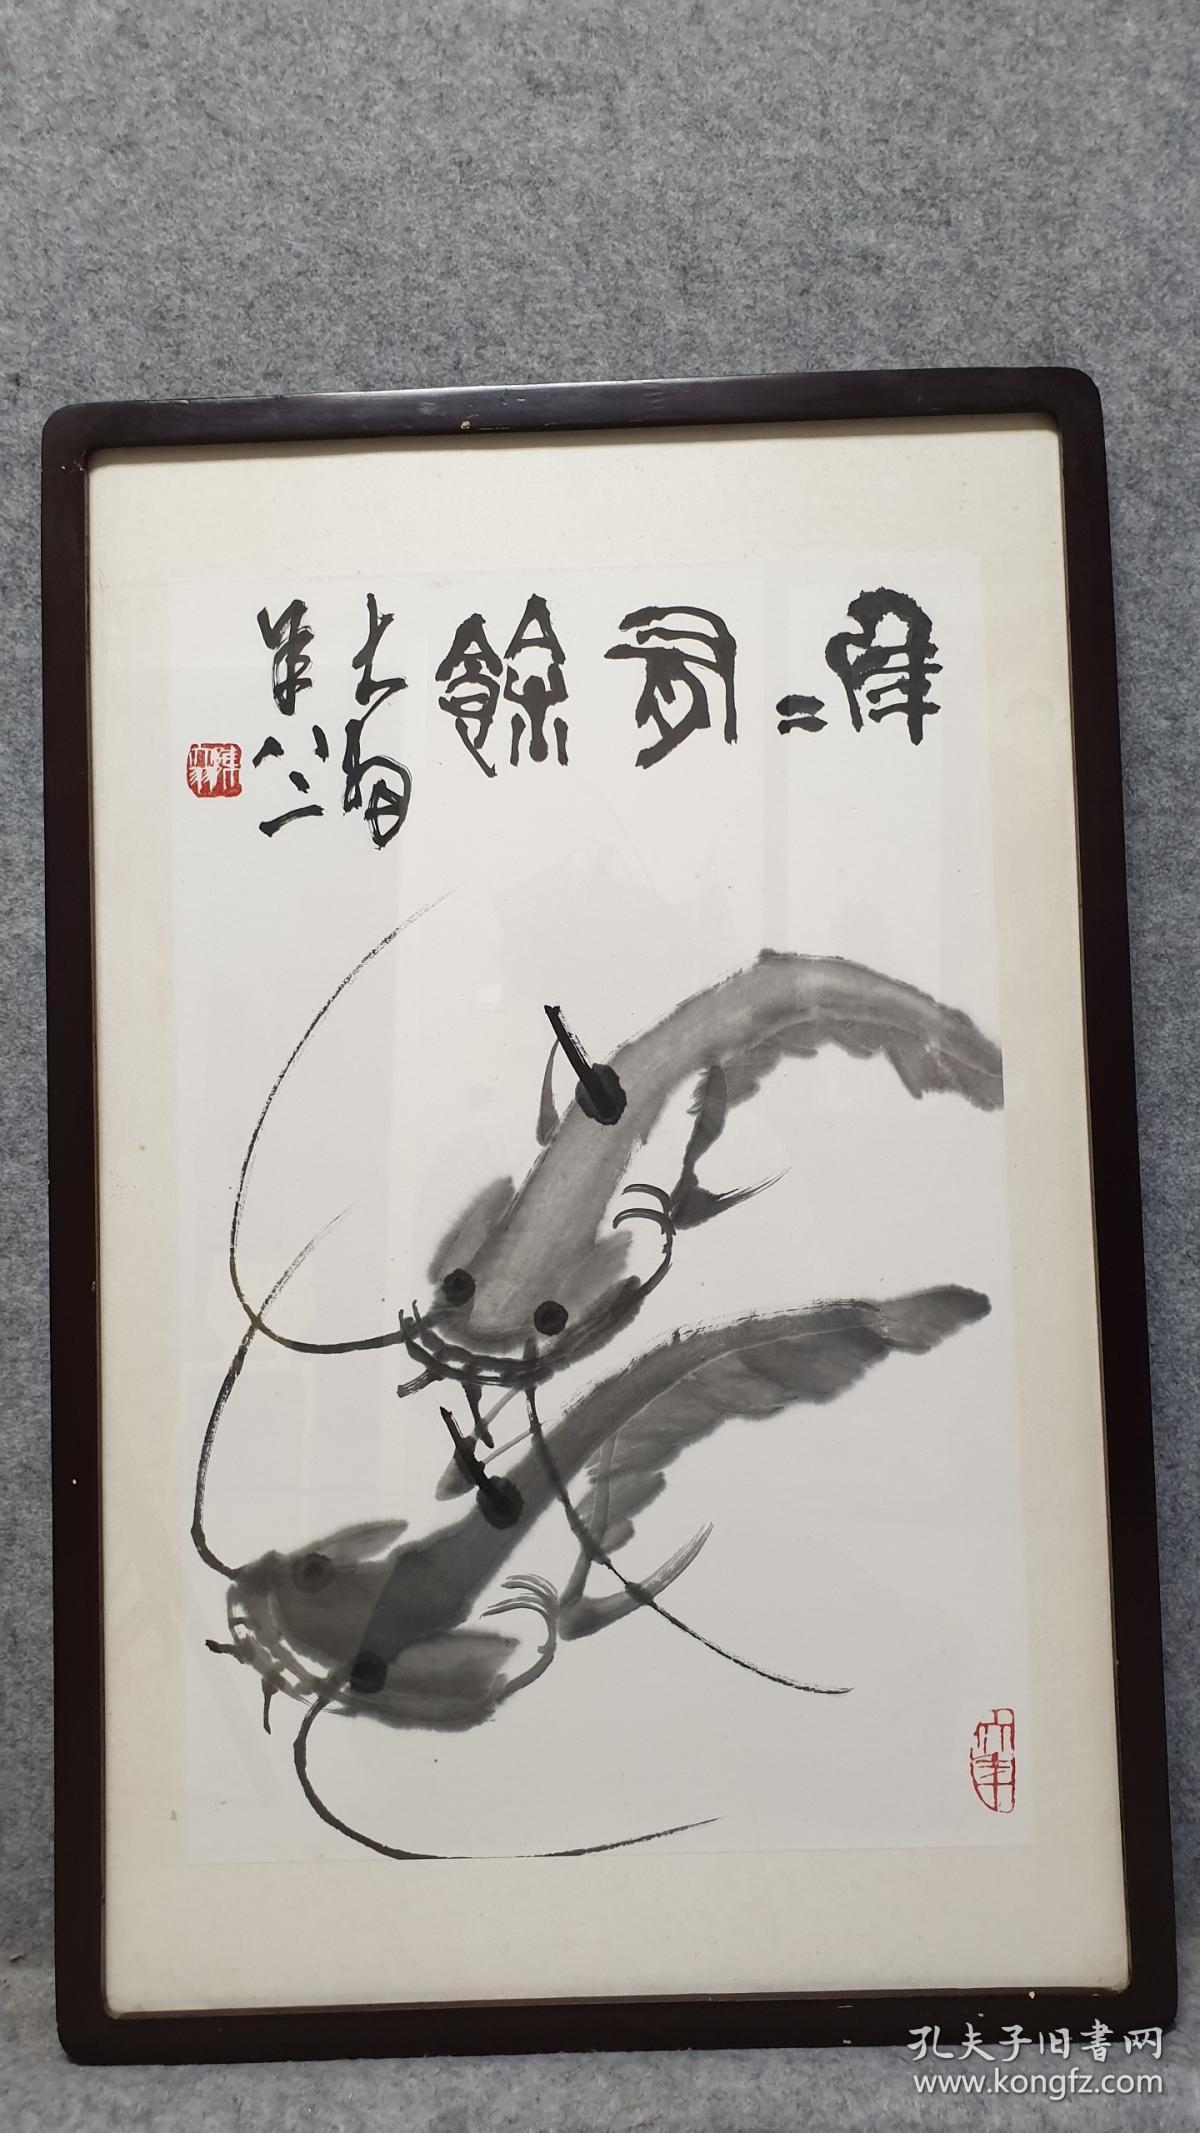 年〻有餘
大羽
年八二
陳大羽
孔夫子旧書网
www.kongfz.com